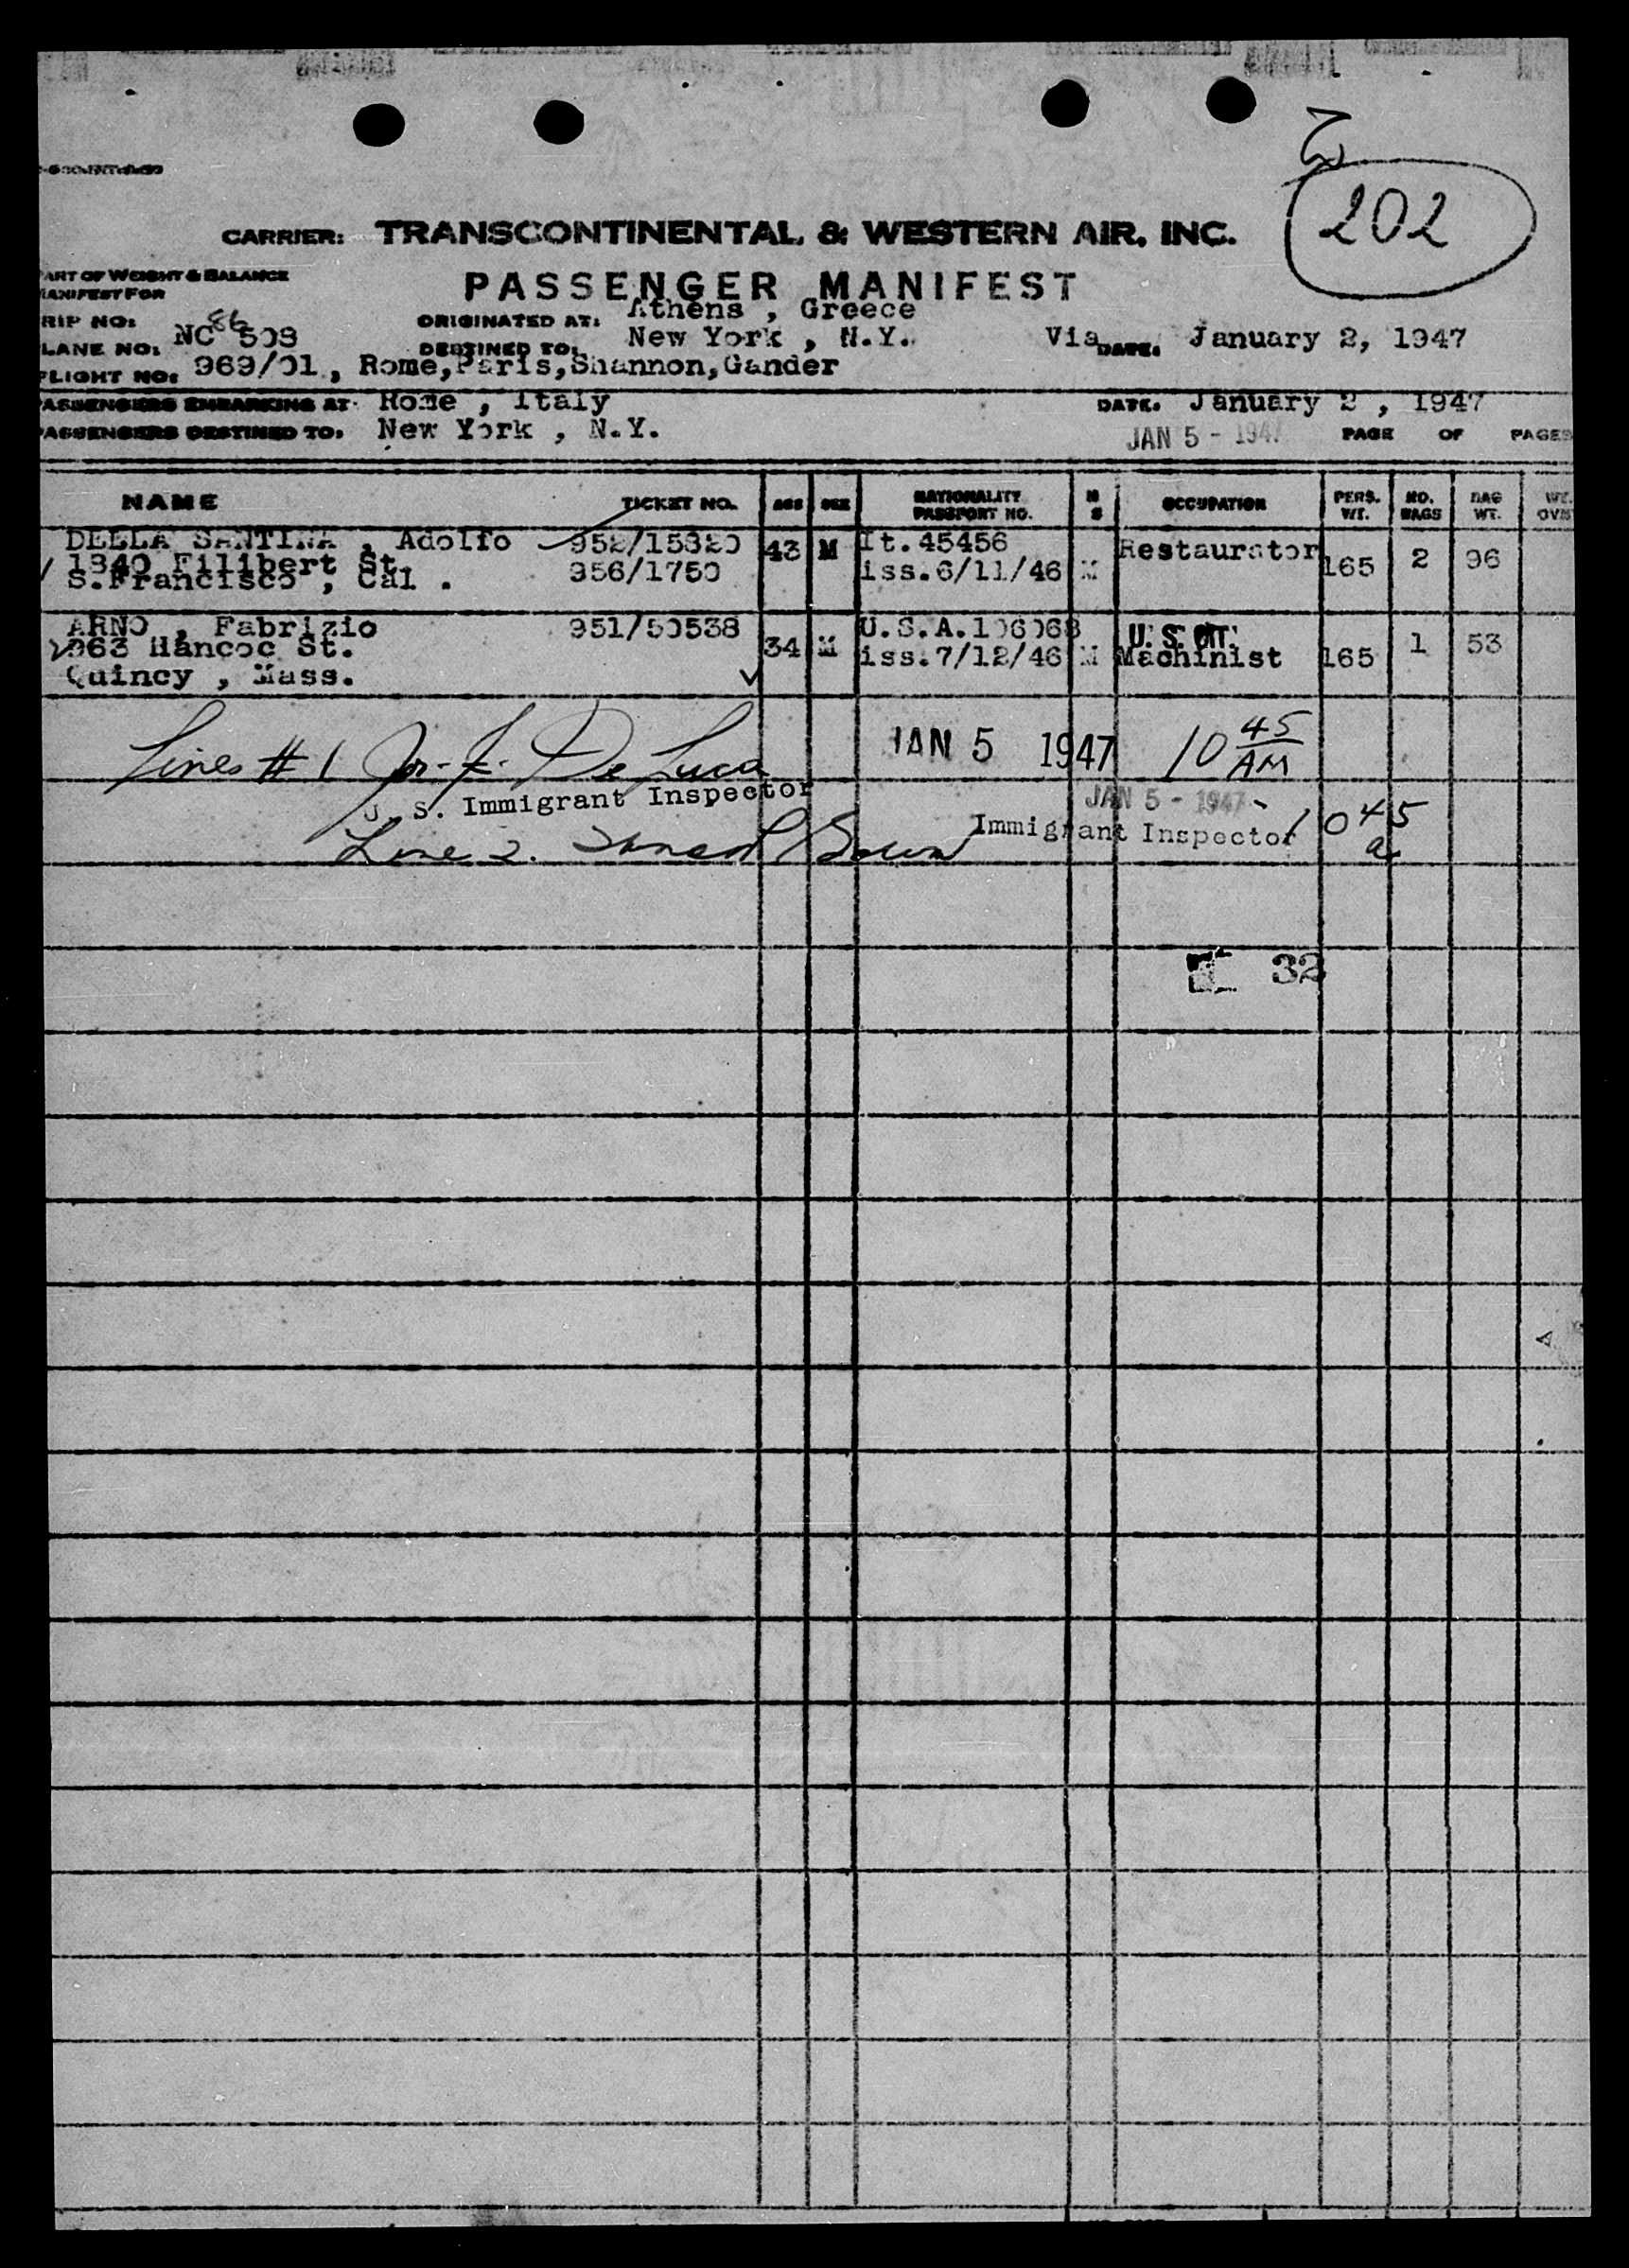 202
CARRIER: TRANSCONTINENTAL & WESTERN AIR, INC.
ART OF WEIGHT & BALANCE
MANIFEST FOR
PASSENGER MANIFEST
RIP NO: 86 ORIGINATED AT: Athens , Greece
LANE NO: NC 503 DESTINED TO: New York , N.Y. Via DATE. January 2, 1947
FLIGHT NO: 969/01 , Rome,Paris,Shannon,Gander
PASSENGERS EMBARKING AT Rome , Italy DATE. January 2 , 1947
PASSENGERS DESTINED TO. New York , N.Y. JAN 5 - 1947 PAGE OF PAGES
NAME TICKET NO. AGE SEX NATIONALITY PASSPORT NO. M S OCCUPATION PERS. WT. NO. BAGS BAG WT. WT. OV
DELLA SANTINA , Adolfo 952/15320 43 M It.45456 Restaurator
1840 Filibert St. 956/1750 iss.6/11/46 M 165 2 96
S.Francisco , Cal .
ARNO , Fabrizio 951/50538 U.S.A.106068 U. S. CIT.
963 Hancoc St. 34 M iss.7/12/46 M Machinist 165 1 53
Quincy , Mass.
Lines # 1 De Luca JAN 5 1947 10 45 AM
U. S. Immigrant Inspector JAN 5 - 1947
Line 2. Immigrant Inspector 10 45 a
32